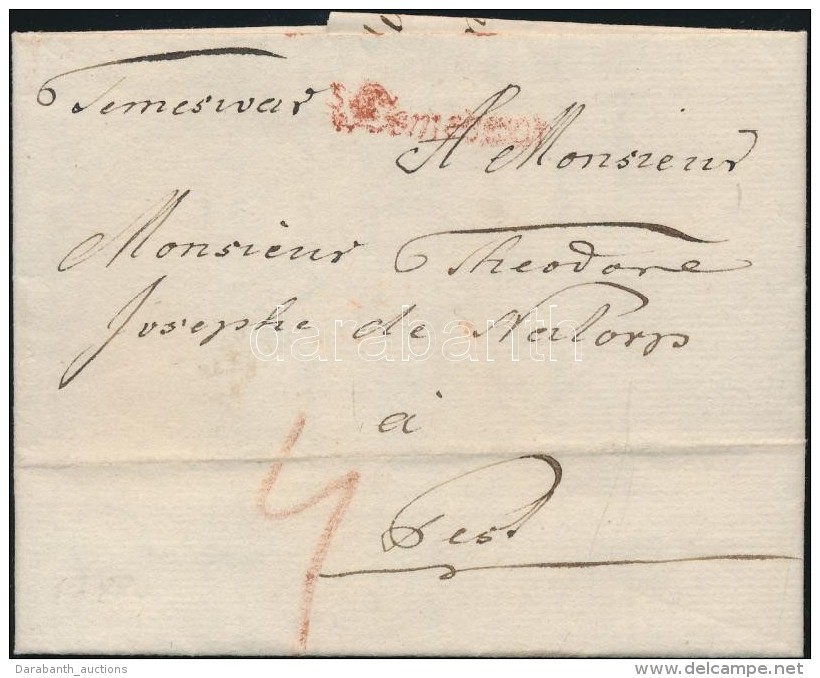 Temeswar
A Monsieur
Monsieur Theodore
Josephe de Natorp
à
Pest
4
darabanth
Darabanth_auctions
www.delcampe.net